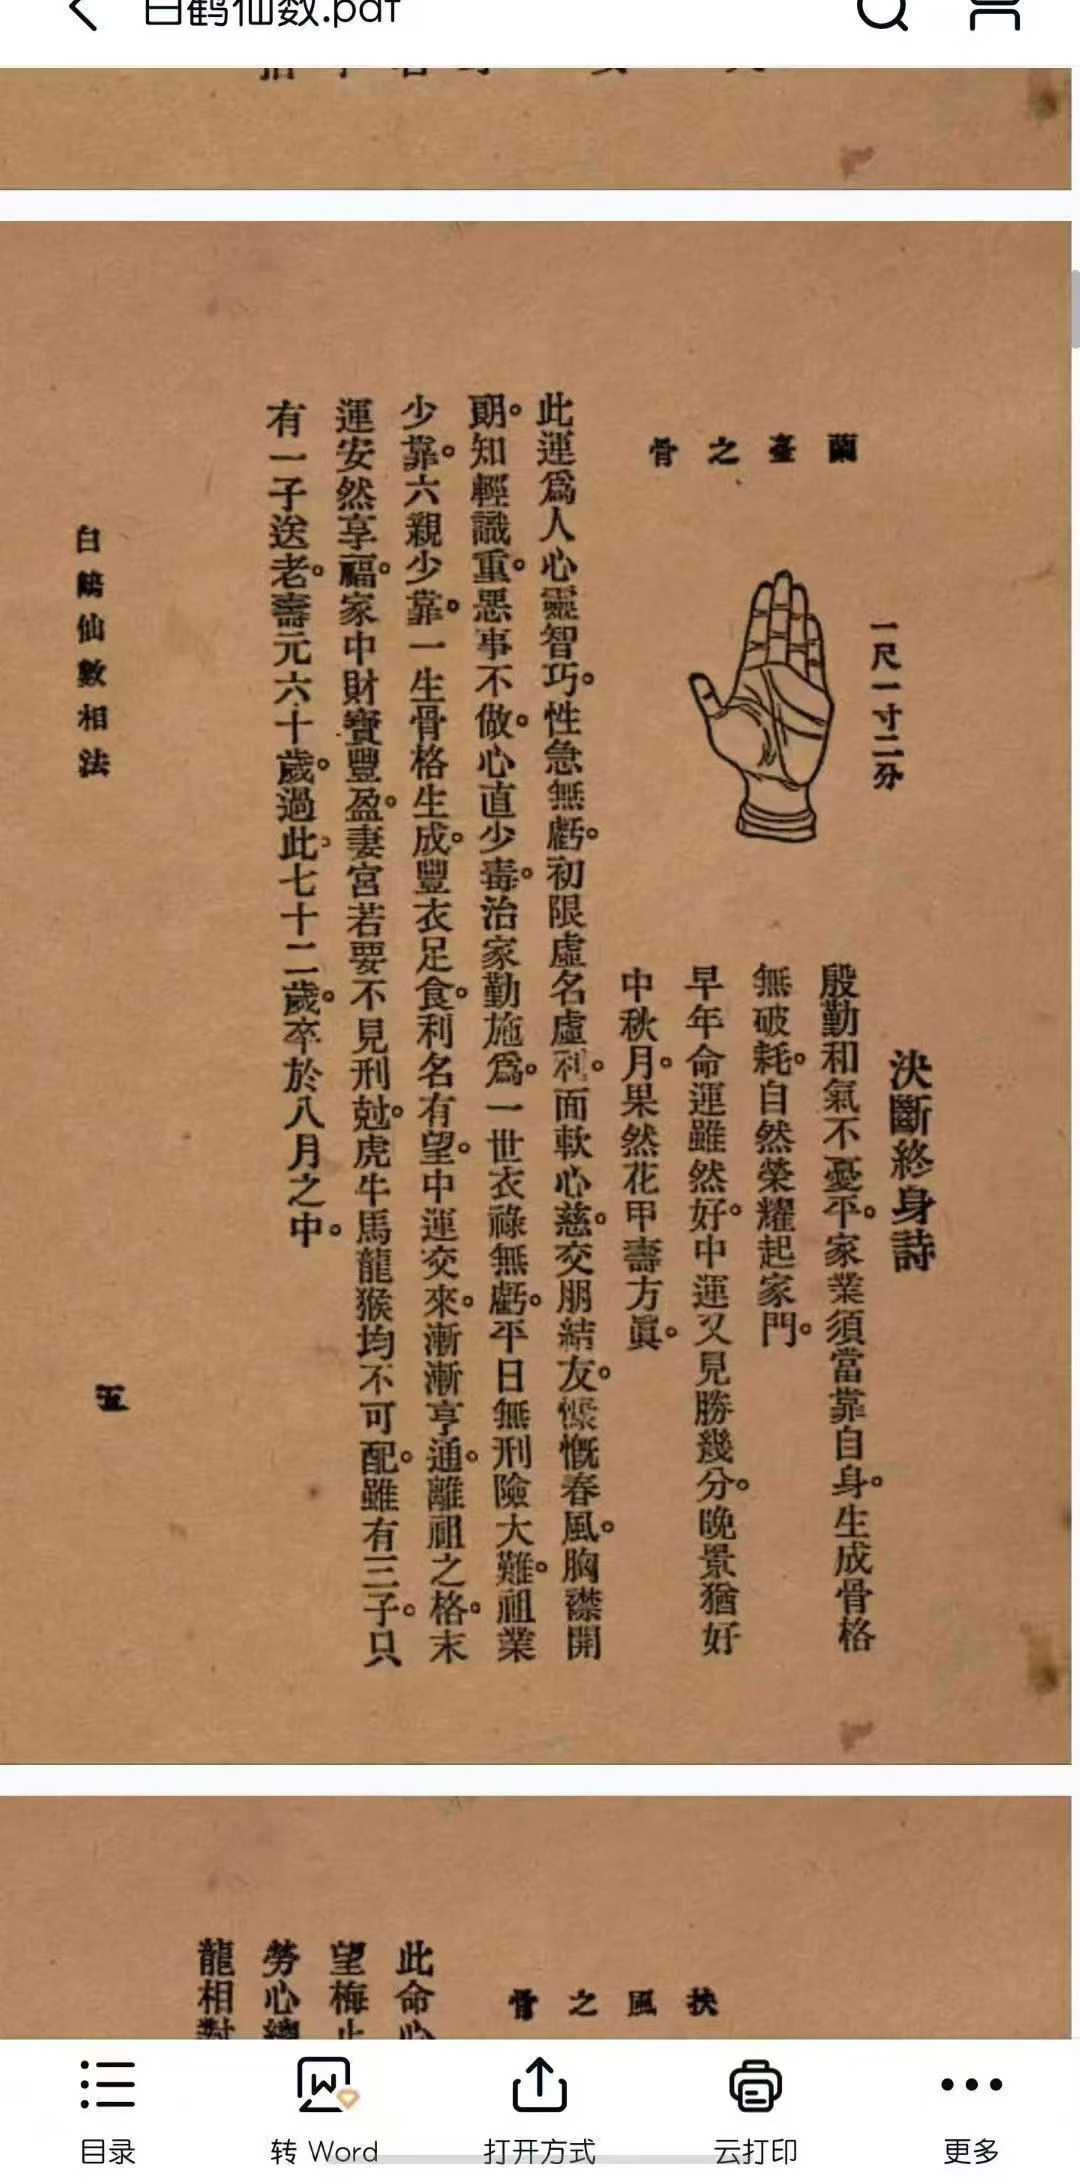 白鹤仙数.pdf
蘭臺之骨
一尺一寸二分
決斷終身詩
殷勤和氣不憂平。家業須當靠自身。生成骨格
無破耗。自然榮耀起家門。
早年命運雖然好。中運又見勝幾分。晚景猶好
中秋月。果然花甲壽方眞。
此運爲人心靈智巧。性急無虧。初限虛名虛利。面軟心慈。交朋結友。慷慨春風。胸襟開
朗。知輕識重。惡事不做。心直少毒。治家勤施爲。一世衣祿無虧。平日無刑險大難。祖業
少靠。六親少靠。一生骨格生成。豐衣足食。利名有望。中運交來。漸漸亨通。離祖之格。末
運安然享福。家中財寶豐盈。妻宮若要不見刑尅。虎牛馬龍猴均不可配。雖有三子。只
有一子送老。壽元六十歲。過此。七十二歲。卒於八月之中。
白鶴仙數相法
五
扶風之骨
此命心
望梅止
勞心總
龍相對
目录
转 Word
打开方式
云打印
更多